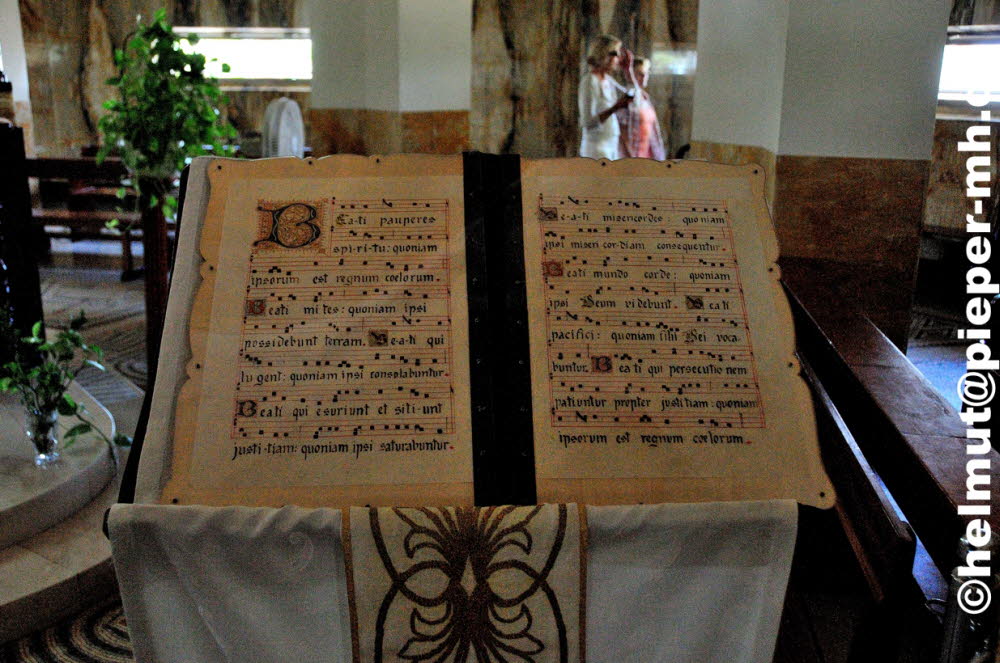 Bea-ti pauperes
spi-ri-tu: quoniam
ipsorum est regnum coelorum.
Beati mi tes: quoniam ipsi
possidebunt terram. Be-a-ti qui
lu gent: quoniam ipsi consolabuntur.
Beati qui esuriunt et siti-unt
justi-tiam: quoniam ipsi saturabuntur.
Be-a-ti misericordes: quoniam
ipsi miseri cor-diam consequentur.
Beati mundo corde: quoniam
ipsi Deum videbunt. Beati
pacifici: quoniam filii Dei voca-
buntur. Beati qui persecutio nem
patiuntur propter justitiam: quoniam
ipsorum est regnum coelorum.
©helmut@pieper-mh.